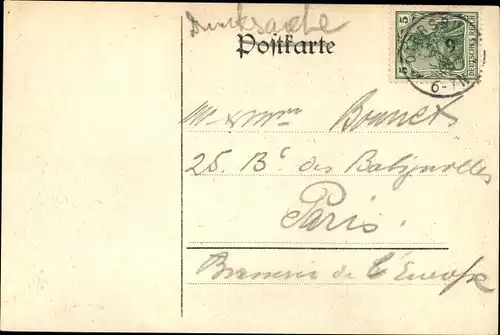 Drucksache
Postkarte
5 5
DEUTSCHES REICH
6-7N
M. et Mme Bonnet
25. Bd des Batignolles
Paris.
Brasserie de l'Europe